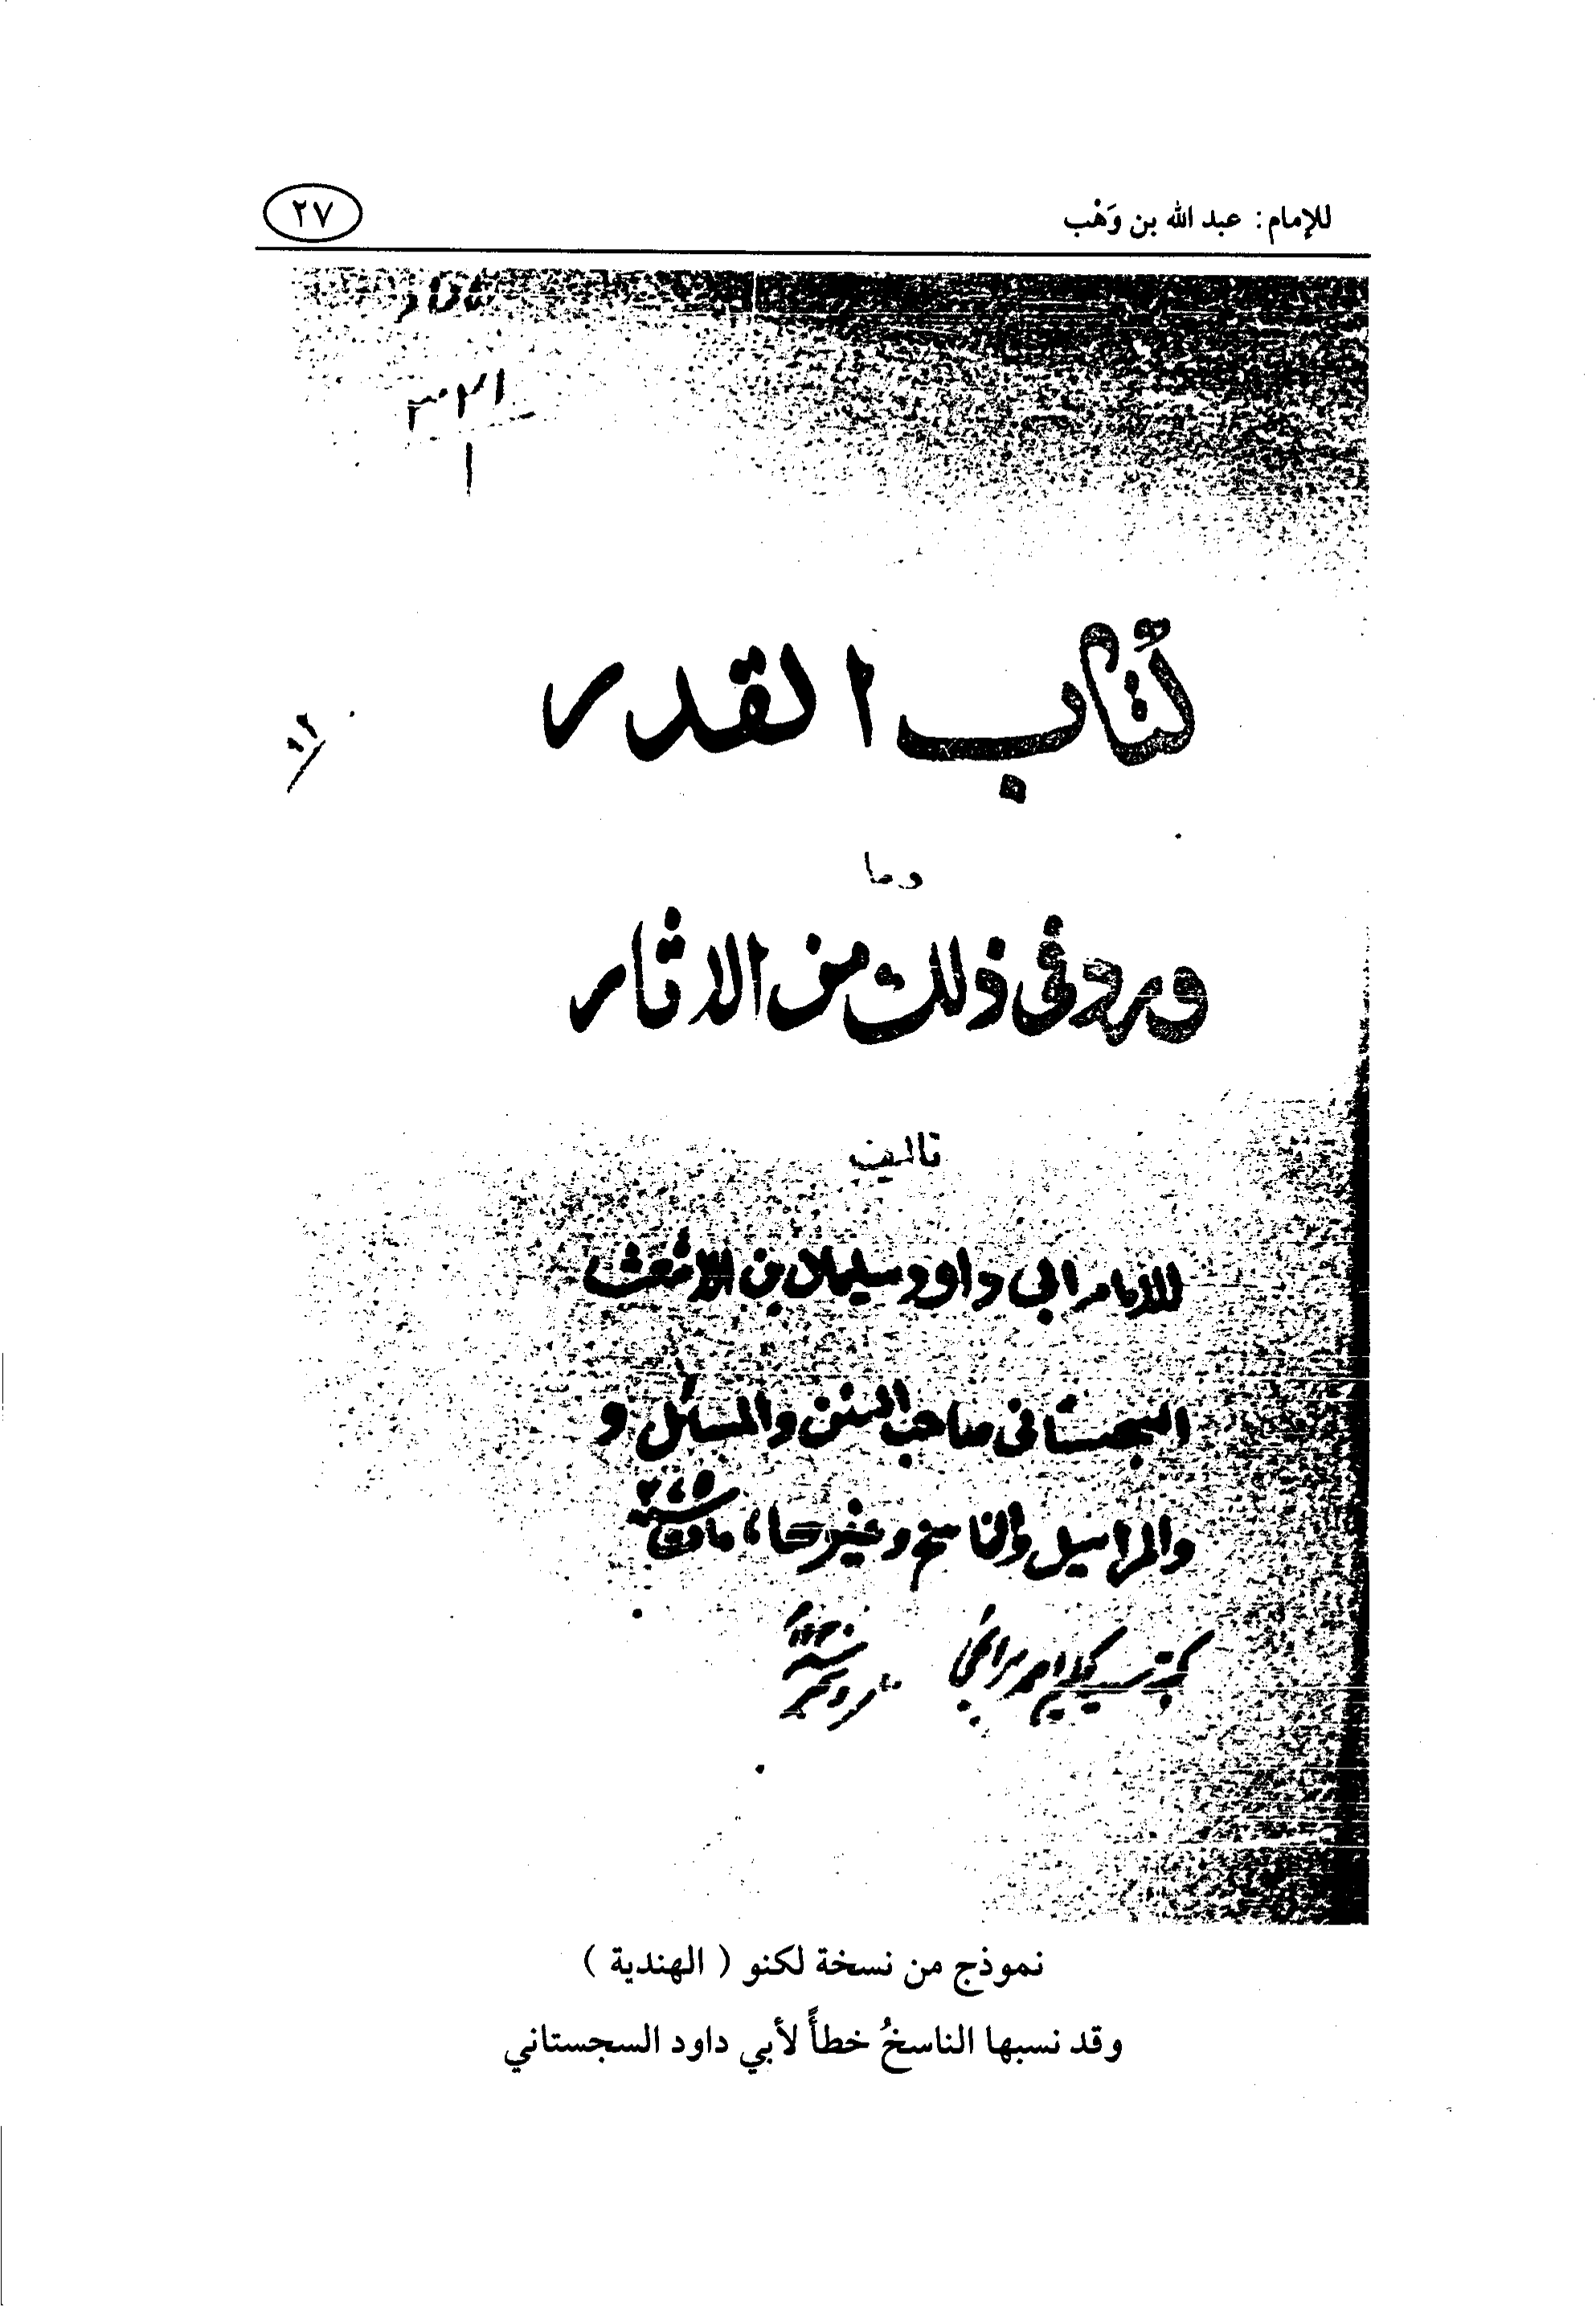 للإمام: عبد الله بن وَهْب
٢٧
كتاب القدر
وما
ورد فى ذلك من الاثار
تاليف
للامام ابي داود سليمان بن الاشعث
السجستانى صاحب السنن والمسائل و
والمراسيل والناسخ وغيرها، مات سنة ٢٧٥
نموذج من نسخة لكنو ( الهندية )
وقد نسبها الناسخُ خطأً لأبي داود السجستاني